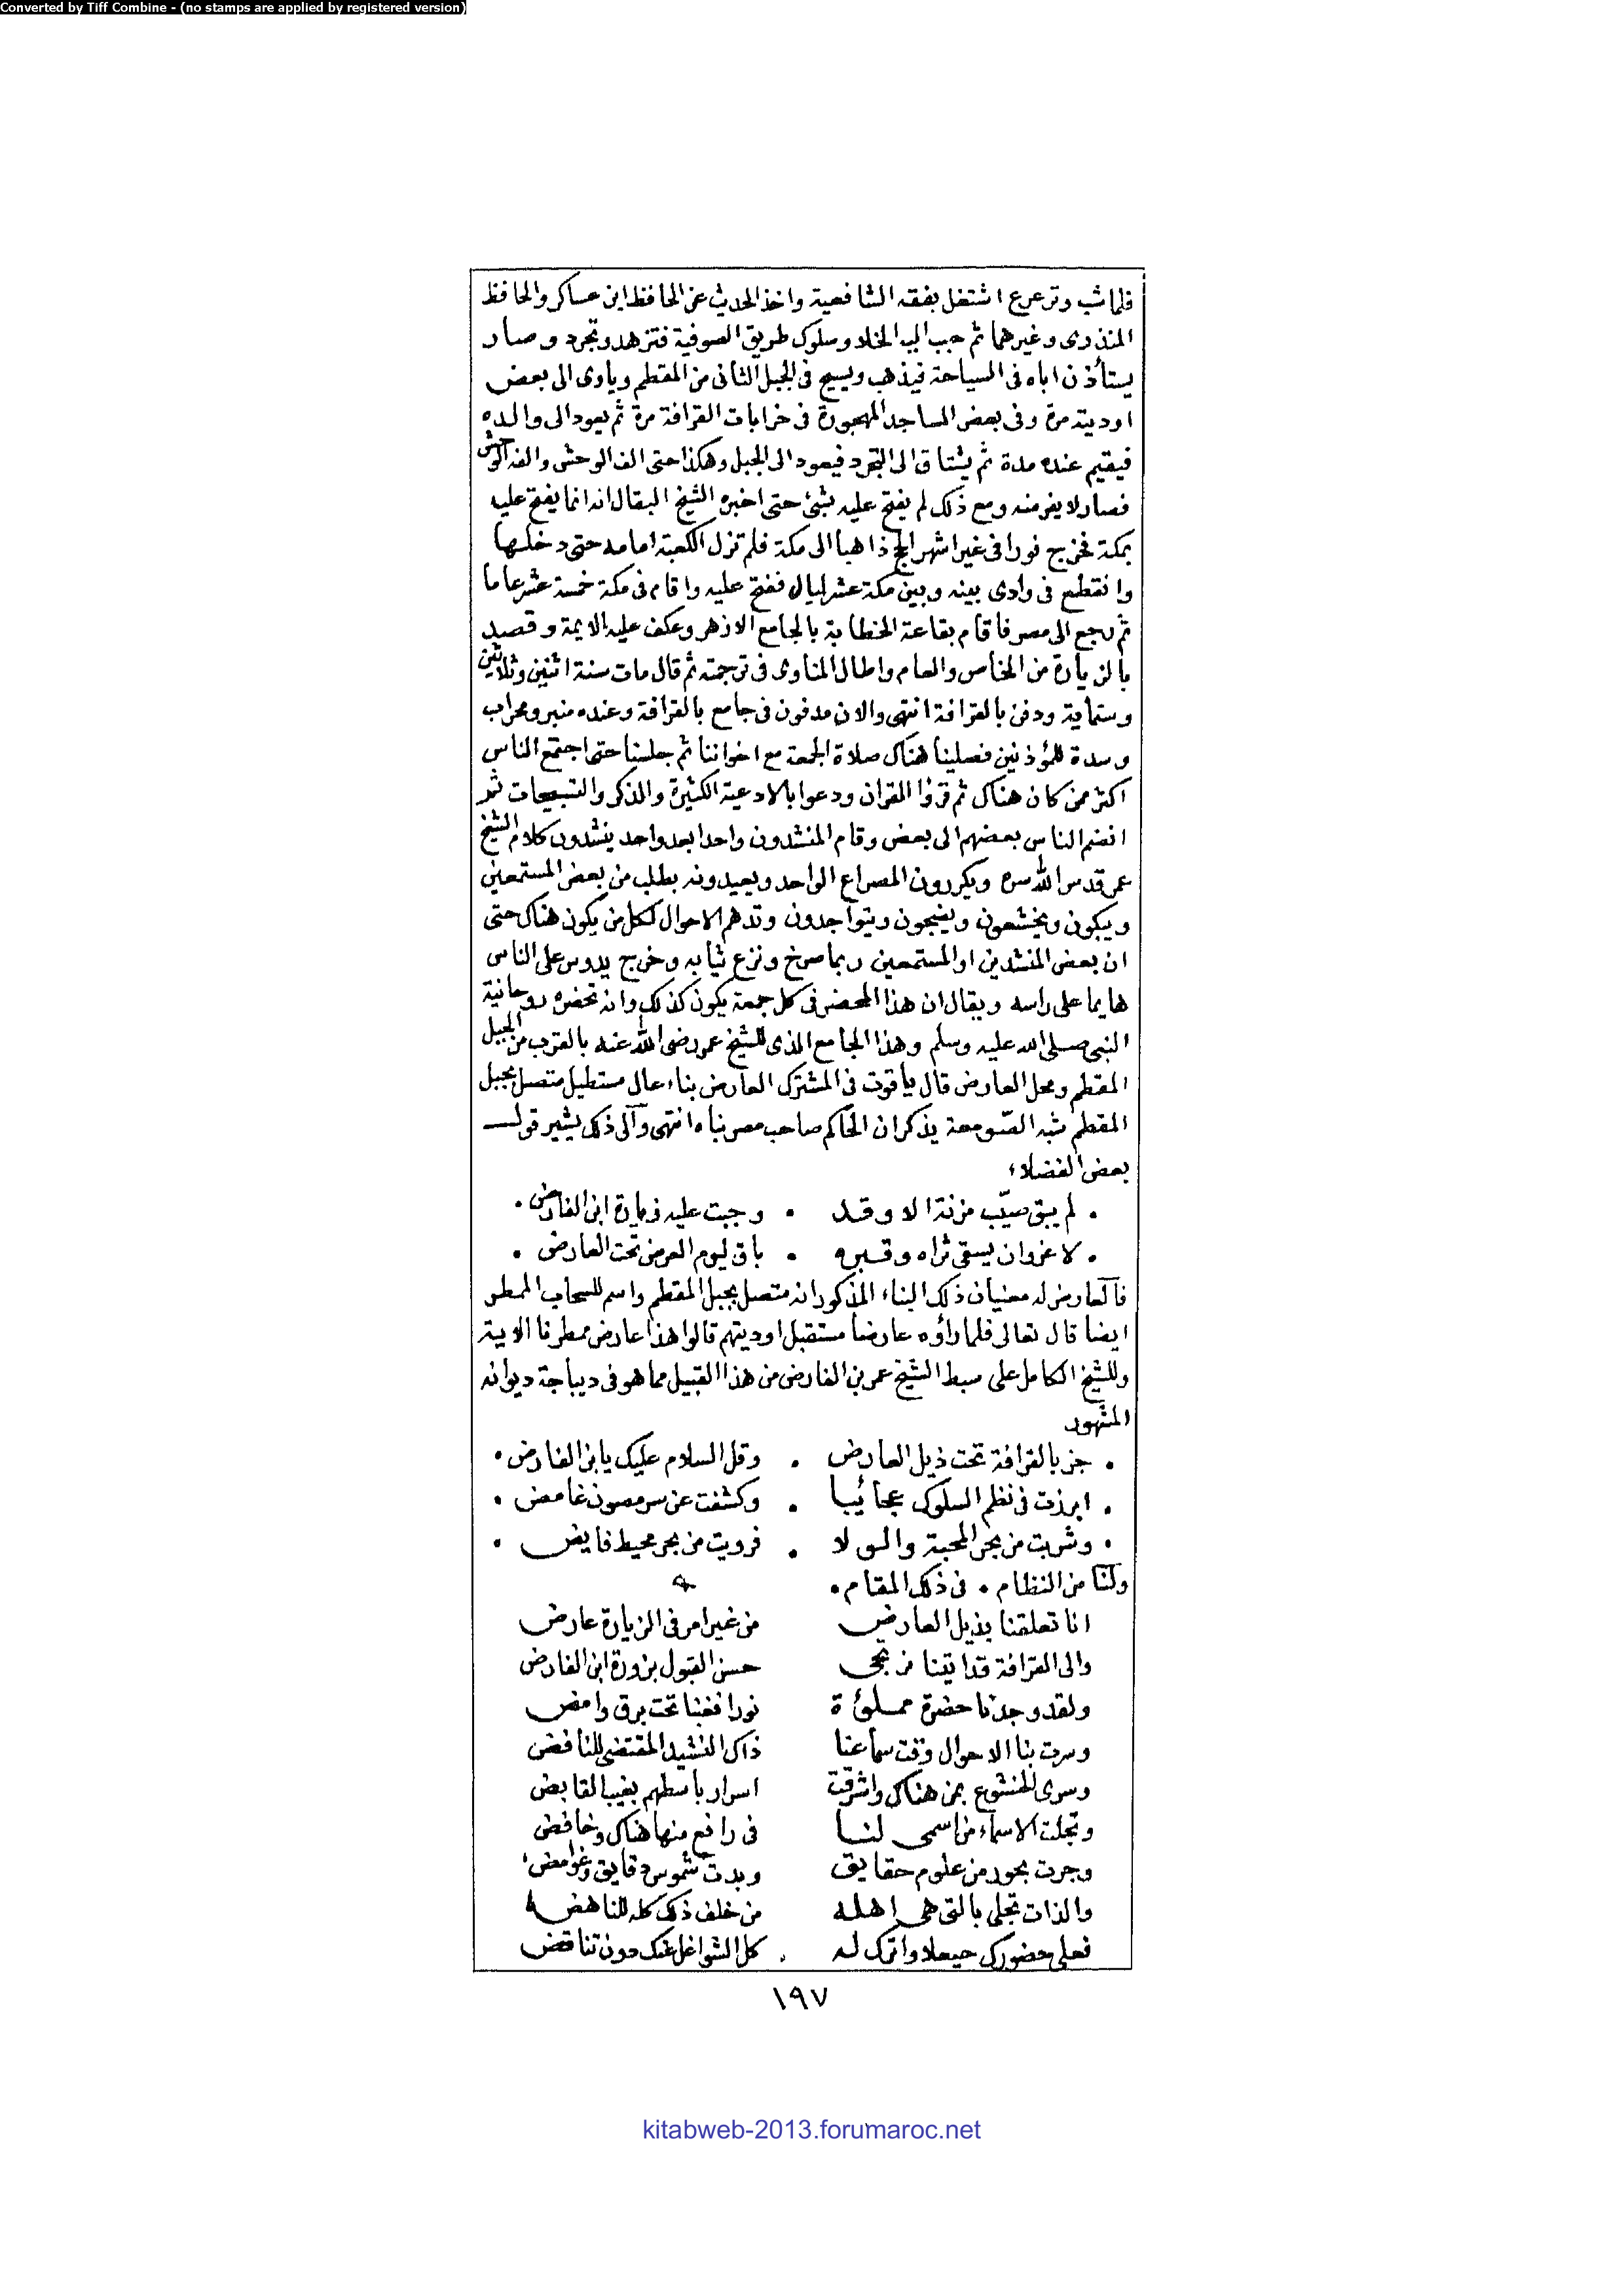 Converted by Tiff Combine - (no stamps are applied by registered version)
فلما شب وترعرع اشتغل بفقه الشافعية واخذ الحديث عن الحافظ ابن عساكر والحافظ
المنذرى وغيرهما ثم حبب اليه الخلا وسلوك طريق الصوفية فتزهد وتجرد وصار
يستأذن اباه فى السياحة فيذهب ويسيح فى الجبل الثانى من المقطم وياوى الى بعض
اوديته مرة وفى بعض المساجد المهجورة فى خرابات القرافة مرة ثم يعود الى والده
فيقيم عنده مدة ثم يشتاق الى التجرد فيعود الى الجبل وهكذا حتى الف الوحش والفه الوحش
فصار لا يفر منه ومع ذلك لم يفتح عليه بشئ حتى اخبره الشيخ البقال انه انما يفتح عليه
بمكة فخرج فورا فى غير اشهر الحج ذاهبا الى مكة فلم تزل الكعبة امامه حتى دخلها
وانقطع فى وادى بينه وبين مكة عشر ليال ففتح عليه واقام فى مكة خمسة عشر عاما
ثم رجع الى مصر فاقام بقاعة الخطابة بالجامع الازهر وعكف عليه الايمة وقصد
بالزيارة من الخاص والعام واطال المناوى فى ترجمته ثم قال مات سنة اثنين وثلاثين
وستماية ودفن بالقرافة انتهى والان مدفون فى جامع بالقرافة وعنده منبر ومحراب
وسدة للمؤذنين فصلينا هناك صلاة الجمعة مع اخواننا ثم جلسنا حتى اجتمع الناس
اكثر ممن كان هناك ثم قرؤا القران ودعوا بالادعية الكثيرة والذكر والتسبيحات ثم
انضم الناس بعضهم الى بعض وقام المنشدون واحدا بعد واحد ينشدون كلام الشيخ
عمر قدس الله سره ويكررون المصراع الواحد ويعيدونه بطلب من بعض المستمعين
ويبكون ويخشعون ويضجون ويتواجدون وتدهم الاحوال لكل من يكون هناك حتى
ان بعض المنشدين او المستمعين ربما صرخ ونزع ثيابه وخرج يدوس على الناس
هايما على راسه ويقال ان هذا المحضر فى كل جمعة يكون كذلك وانه تحضره روحانية
النبى صلى الله عليه وسلم وهذا الجامع الذى للشيخ عمر رضى الله عنه بالقرب من الجبل
المقطم ومحل العارض قال ياقوت فى المشترك العارض بناء عال مستطيل متصل بجبل
المقطم شبه الصومعة يذكر ان الحاكم صاحب مصر بناه انتهى والى ذلك يشير قول
بعض الفضلاء
• لم يبق صيّب مزنة الا وقد • وجبت عليه زيارة ابن الفارض •
• لا غرو ان يسقى ثراه وقبره • باق ليوم العرض تحت العارض •
فالعارض له معنيان ذلك البناء المذكور انه متصل بجبل المقطم واسم للسحاب الممطر
ايضا قال تعالى فلما رأوه عارضا مستقبل اوديتهم قالوا هذا عارض ممطرنا الاية
وللشيخ الكامل على سبط الشيخ عمر بن الفارض من هذا القبيل مما هو فى ديباجة ديوانه
المشهور
• جز بالقرافة تحت ذيل العارض • وقل السلام عليك يا ابن الفارض •
• ابرزت فى نظم السلوك عجائبا • وكشفت عن سر مصون غامض •
• وشربت من بحر المحبة والولا • فرويت من بحر محيط فايض •
ولنا من النظام • فى ذلك المقام •
انا تعلقنا بذيل العارض من غير امر فى الزيارة عارض
والى القرافة قد اتينا نرتجى حسن القبول بزورة ابن الفارض
ولقد وجدنا حضرة مملؤة نورا فغبنا تحت برق وامض
وسرت بنا الاحوال وقت سماعنا ذاك النشيد المقتضى للنافض
وسرى الخشوع بمن هناك واشرقت اسرار باسطهم بغيب القابض
وتجلت الاسماء من اسمى لنا فى رافع منها هناك وخافض
وجرت بحور من علوم حقايق وبدت شموس دقايق وغوامض
والذات تجلى بالتى هى اهله من خلف ذلك كله للناهض
فعلى حضورك حيعلا واترك له كل الشواغل عنك دون تناقض
١٩٧
kitabweb-2013.forumaroc.net